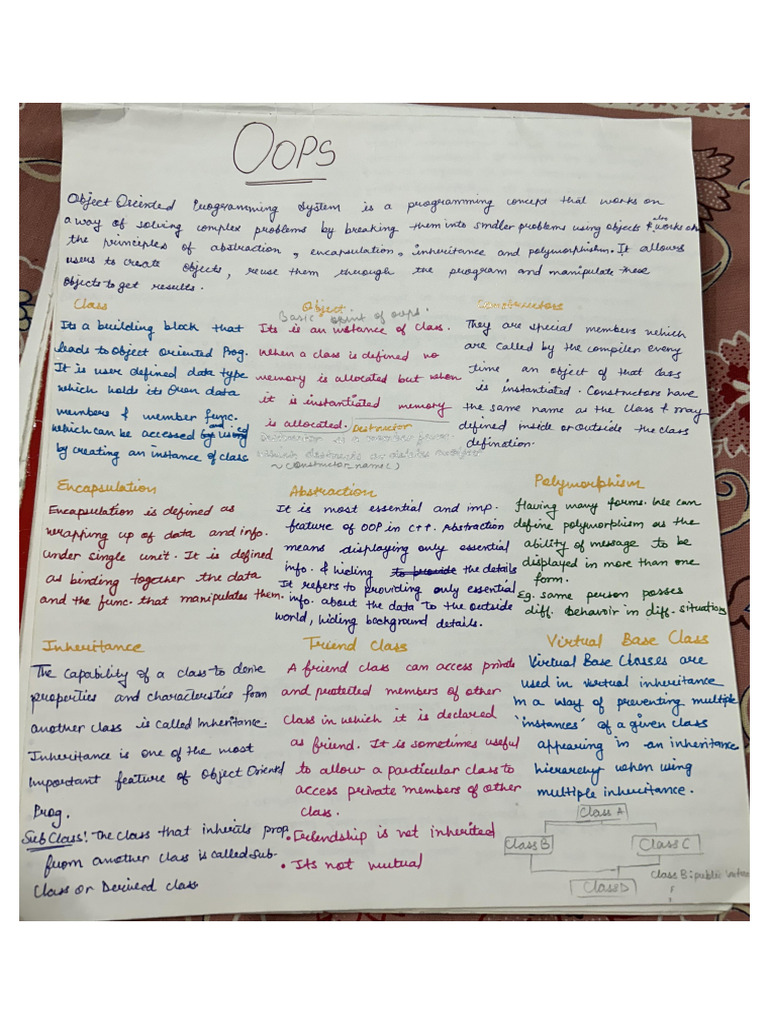 OOPS
Object Oriented Programming System is a programming concept that works on
a way of solving complex problems by breaking them into smaller problems using objects & also works on
the principles of abstraction, encapsulation, inheritance and polymorphism. It allows
users to create objects, reuse them through the program and manipulate these
objects to get results.
Class
Its a building block that
leads to Object Oriented Prog.
It is user defined data type
which holds its own data
members & member func.
which can be accessed and used
by creating an instance of class
Object
Basic unit of oops.
Its is an instance of class.
When a class is defined no
memory is allocated but when
it is instantiated memory
is allocated.
Destructor
Destructor is a member func.
which destructs or deletes
~(constructor name()
Constructors
They are special members which
are called by the compiler every
time an object of that class
is instantiated. Constructors have
the same name as the class & may
defined inside or outside the class
defination.
Encapsulation
Encapsulation is defined as
wrapping up of data and info.
under single unit. It is defined
as binding together the data
and the func. that manipulates them.
Abstraction
It is most essential and imp.
feature of OOP in C++. Abstraction
means displaying only essential
info. & hiding to provide the details
It refers to providing only essential
info. about the data to the outside
world, hiding background details.
Polymorphism
Having many forms. We can
define polymorphism as the
ability of message to be
displayed in more than one
form.
Eg. same person posses
diff. Behavoir in diff. situations
Inheritance
The capability of a class to derive
properties and characteristics from
another class is called Inheritance.
Inheritance is one of the most
important feature of Object Oriented
Prog.
Sub Class: The class that inherits prop.
from another class is called Sub-
Class or Derived class
Friend Class
A friend class can access private
and protected members of other
class in which it is declared
as friend. It is sometimes useful
to allow a particular class to
access private members of other
class.
• Friendship is not inherited
• Its not mutual
Virtual Base Class
Virtual Base Classes are
used in virtual inheritance
in a way of preventing multiple
'instances' of a given class
appearing in an inheritance
hierarchy when using
multiple inheritance.
Class A
Class B
Class C
Class D
Class B: public virtual